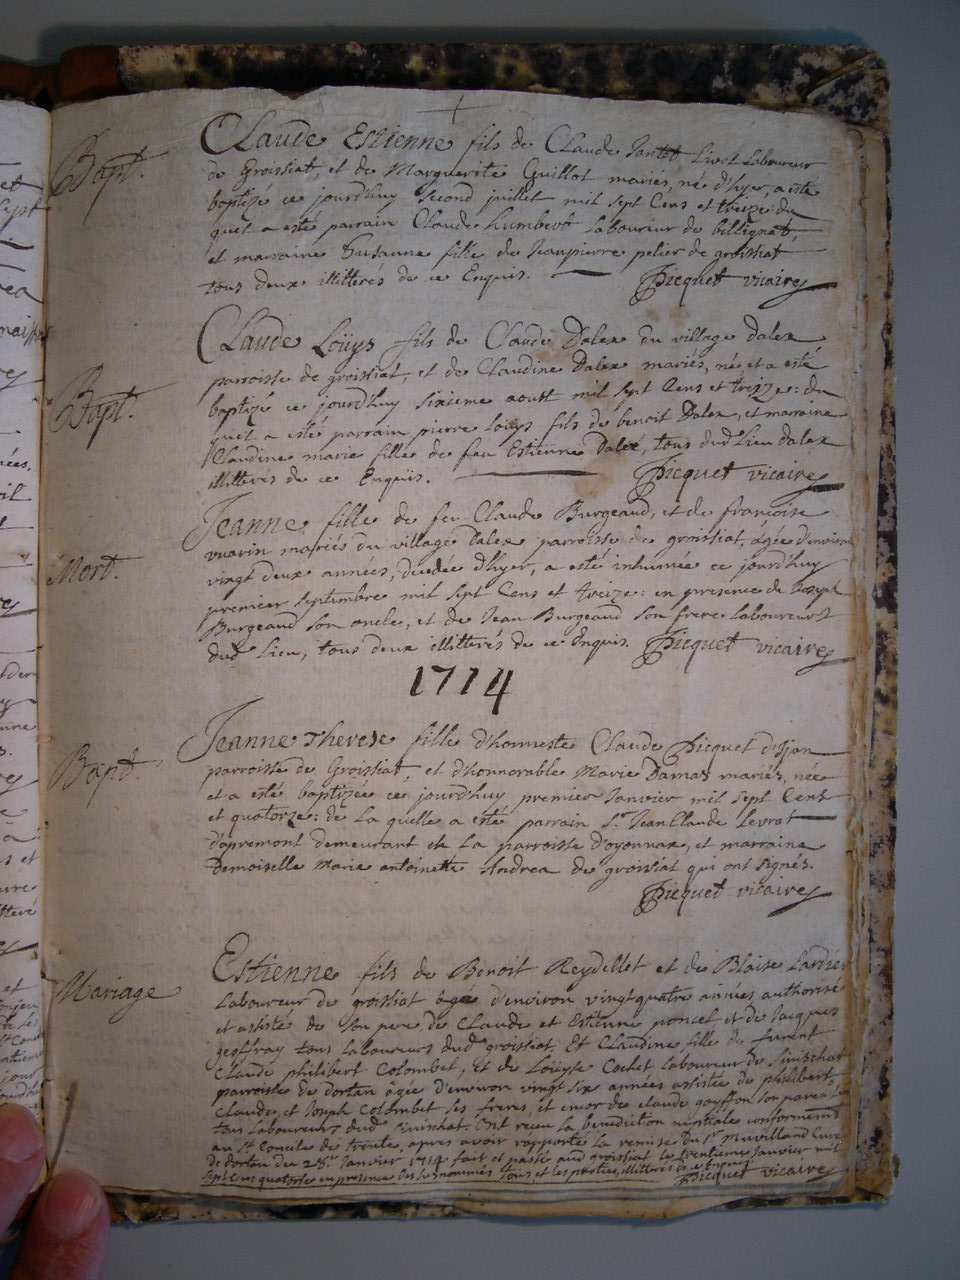 Bapt.
Claude Estienne fils de Claude Laboureur
de Groissiat, et de Marguerite Guillot mariés, né d'hyer, a esté
baptizé ce jourd'huy second juillet mil sept Cens et treize: du
quel a esté parrain Claude humbert laboureur de billignat,
et marraine Susanne fille de Jeanpierre pelier de groissiat
tous deux illitterés de ce Enquis. Picquet vicaire
Bapt.
Claude Loüys fils de Claude Dalex du village dalex
parroisse de groissiat, et de Claudine Dalex mariés, né et a esté
baptizé ce jourd'huy sixieme aoust mil sept Cens et treize: du
quel a esté parrain pierre Loüys fils de benoit Dalex, et marraine
Claudine marie fille de feu Estienne Dalex, tous dud lieu dalex
illitterés de ce Enquis. Picquet vicaire
Mort.
Jeanne fille de feu Claude Burgeaud, et de françoise
vuarin mariés du village Dalex parroisse de groissiat, âgée d'environ
vingt deux années, décédée d'hyer, a esté inhumée ce jourd'huy
premier septembre mil sept Cens et treize: en presence de Joseph
Burgeaud son oncle, et de Jean Burgeaud son frere laboureurs
dud lieu, tous deux illitterés de ce Enquis. Picquet vicaire
1714
Bapt.
Jeanne Therese fille d'honneste Claude Picquet d'Ijon
parroisse de Groissiat, et d'honnorable Marie Damas mariés, née
et a esté baptizée ce jourd'huy premier Janvier mil sept Cens
et quatorze: de la quelle a esté parrain Sr. Jean Claude Levrat
d'apremont demeurant de la parroisse d'oyonnax, et marraine
Demoiselle Marie antoinette Andrea de groissiat qui ont signés.
Picquet vicaire
Mariage
Estienne fils de Benoit Reydellet et de Blaise Lardier
Laboureur de groissiat âgé d'environ vingt quatre années authorisé
et assisté de son pere, de Claude et Estienne poncet et de Jacques
geoffray tous laboureurs dud groissiat Et Claudine fille de furent
Claude philibert Colombet, et de Loüyse Cochet laboureur de Sinissiat
parroisse de dortan âgée d'environ vingt six années assistée de philibert,
Claude, et Joseph Colombet ses freres, et encor de claude gauffon son parent
tous laboureurs dud Ont receu la benediction nuptiale conformement
au St. Concile de trente, apres avoir rapporté la remise du Sr. Muvilland Curé
de dortan du 28e. Janvier 1714 fait et passé aud groissiat le trentieme Janvier mil
sept Cens quatorze en presence des susnommés tous et les parties illitterés de ce Enquis Picquet vicaire